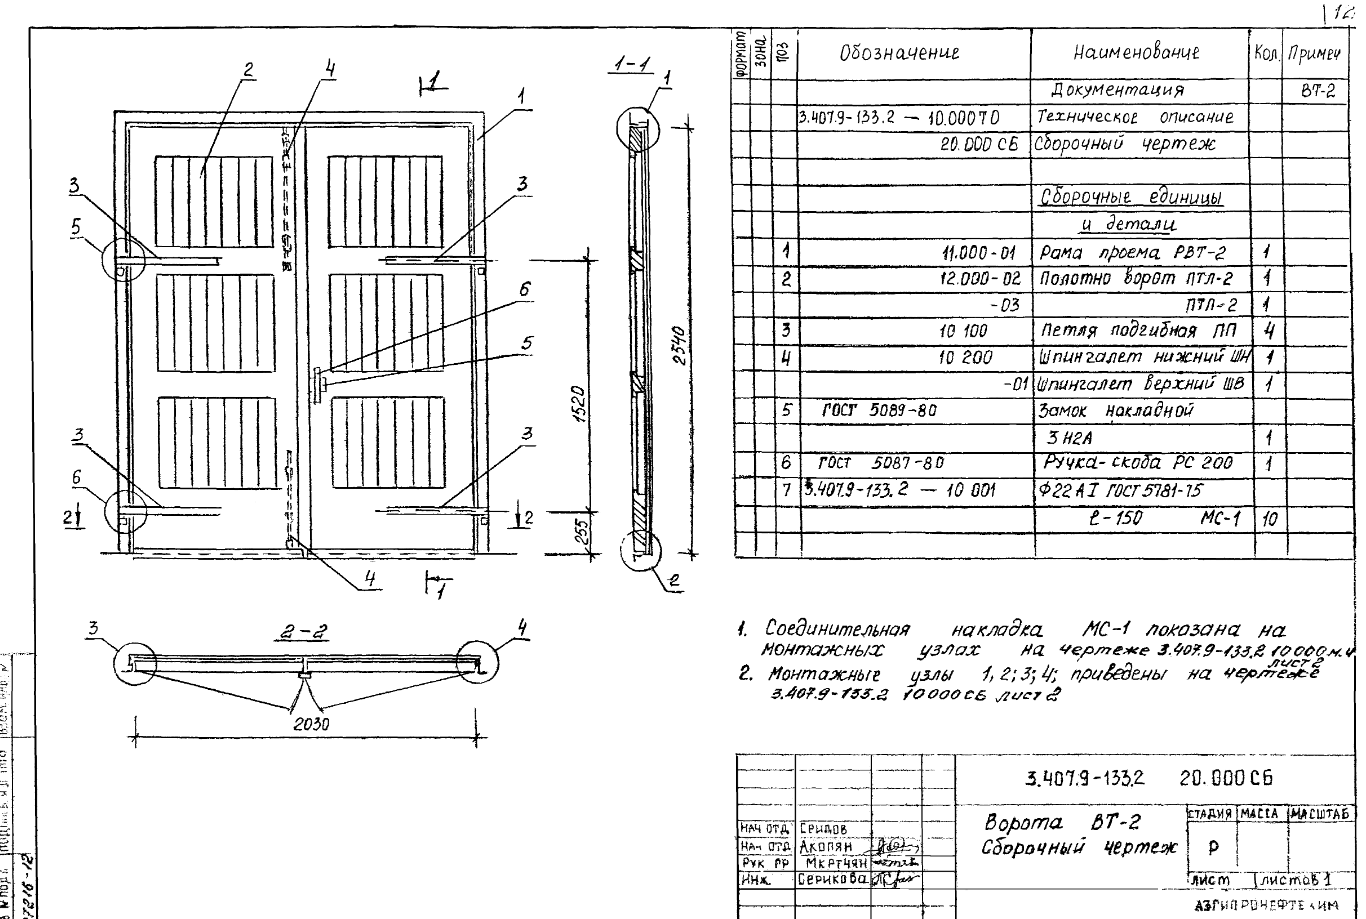 12
2
4
1
1
1-1
1
3
3
5
6
5
2540
1520
3
3
6
2
2
255
4
1
2
3
2-2
4
2030
ФОРМАТ ЗОНА ПОЗ Обозначение Наименование Кол. Примеч
Документация ВТ-2
3.407.9-133.2 — 10.000ТО Техническое описание
20.000 СБ Сборочный чертеж
Сборочные единицы
и детали
1 11.000-01 Рама проема РВТ-2 1
2 12.000-02 Полотно ворот ПТЛ-2 1
-03 ПТЛ-2 1
3 10 100 Петля подгибная ПП 4
4 10 200 Шпингалет нижний ШН 1
-01 Шпингалет верхний ШВ 1
5 ГОСТ 5089-80 Замок накладной
ЗН2А 1
6 ГОСТ 5087-80 Ручка-скоба РС 200 1
7 3.407.9-133.2 — 10 001 Ф22АI ГОСТ 5781-75
ℓ-150 МС-1 10
1. Соединительная накладка МС-1 показана на
монтажных узлах на чертеже 3.407.9-133.2 10000м.ч
лист 2
2. Монтажные узлы 1, 2; 3; 4; приведены на чертеже
3.407.9-133.2 10000СБ лист 2
3.407.9-133.2 20.000СБ
Ворота ВТ-2
Сборочный чертеж
СТАДИЯ МАССА МАСШТАБ
Р
ЛИСТ листов 1
АЗГИПРОНЕФТЕХИМ
НАЧ ОТД
НАЧ ОТД АКОПЯН
РУК ГР МКРТЧЯН
ИНЖ СЕРИКОВА
7216-12